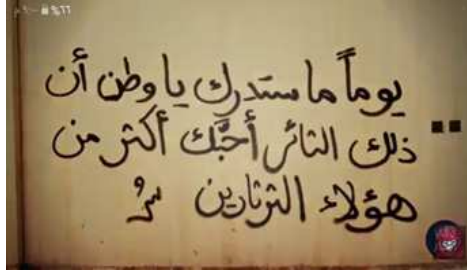 %٦٦
يوماً ما ستدرك يا وطن أن
ذلك الثائر أحبَّك أكثر من
هؤلاء الثرثارين